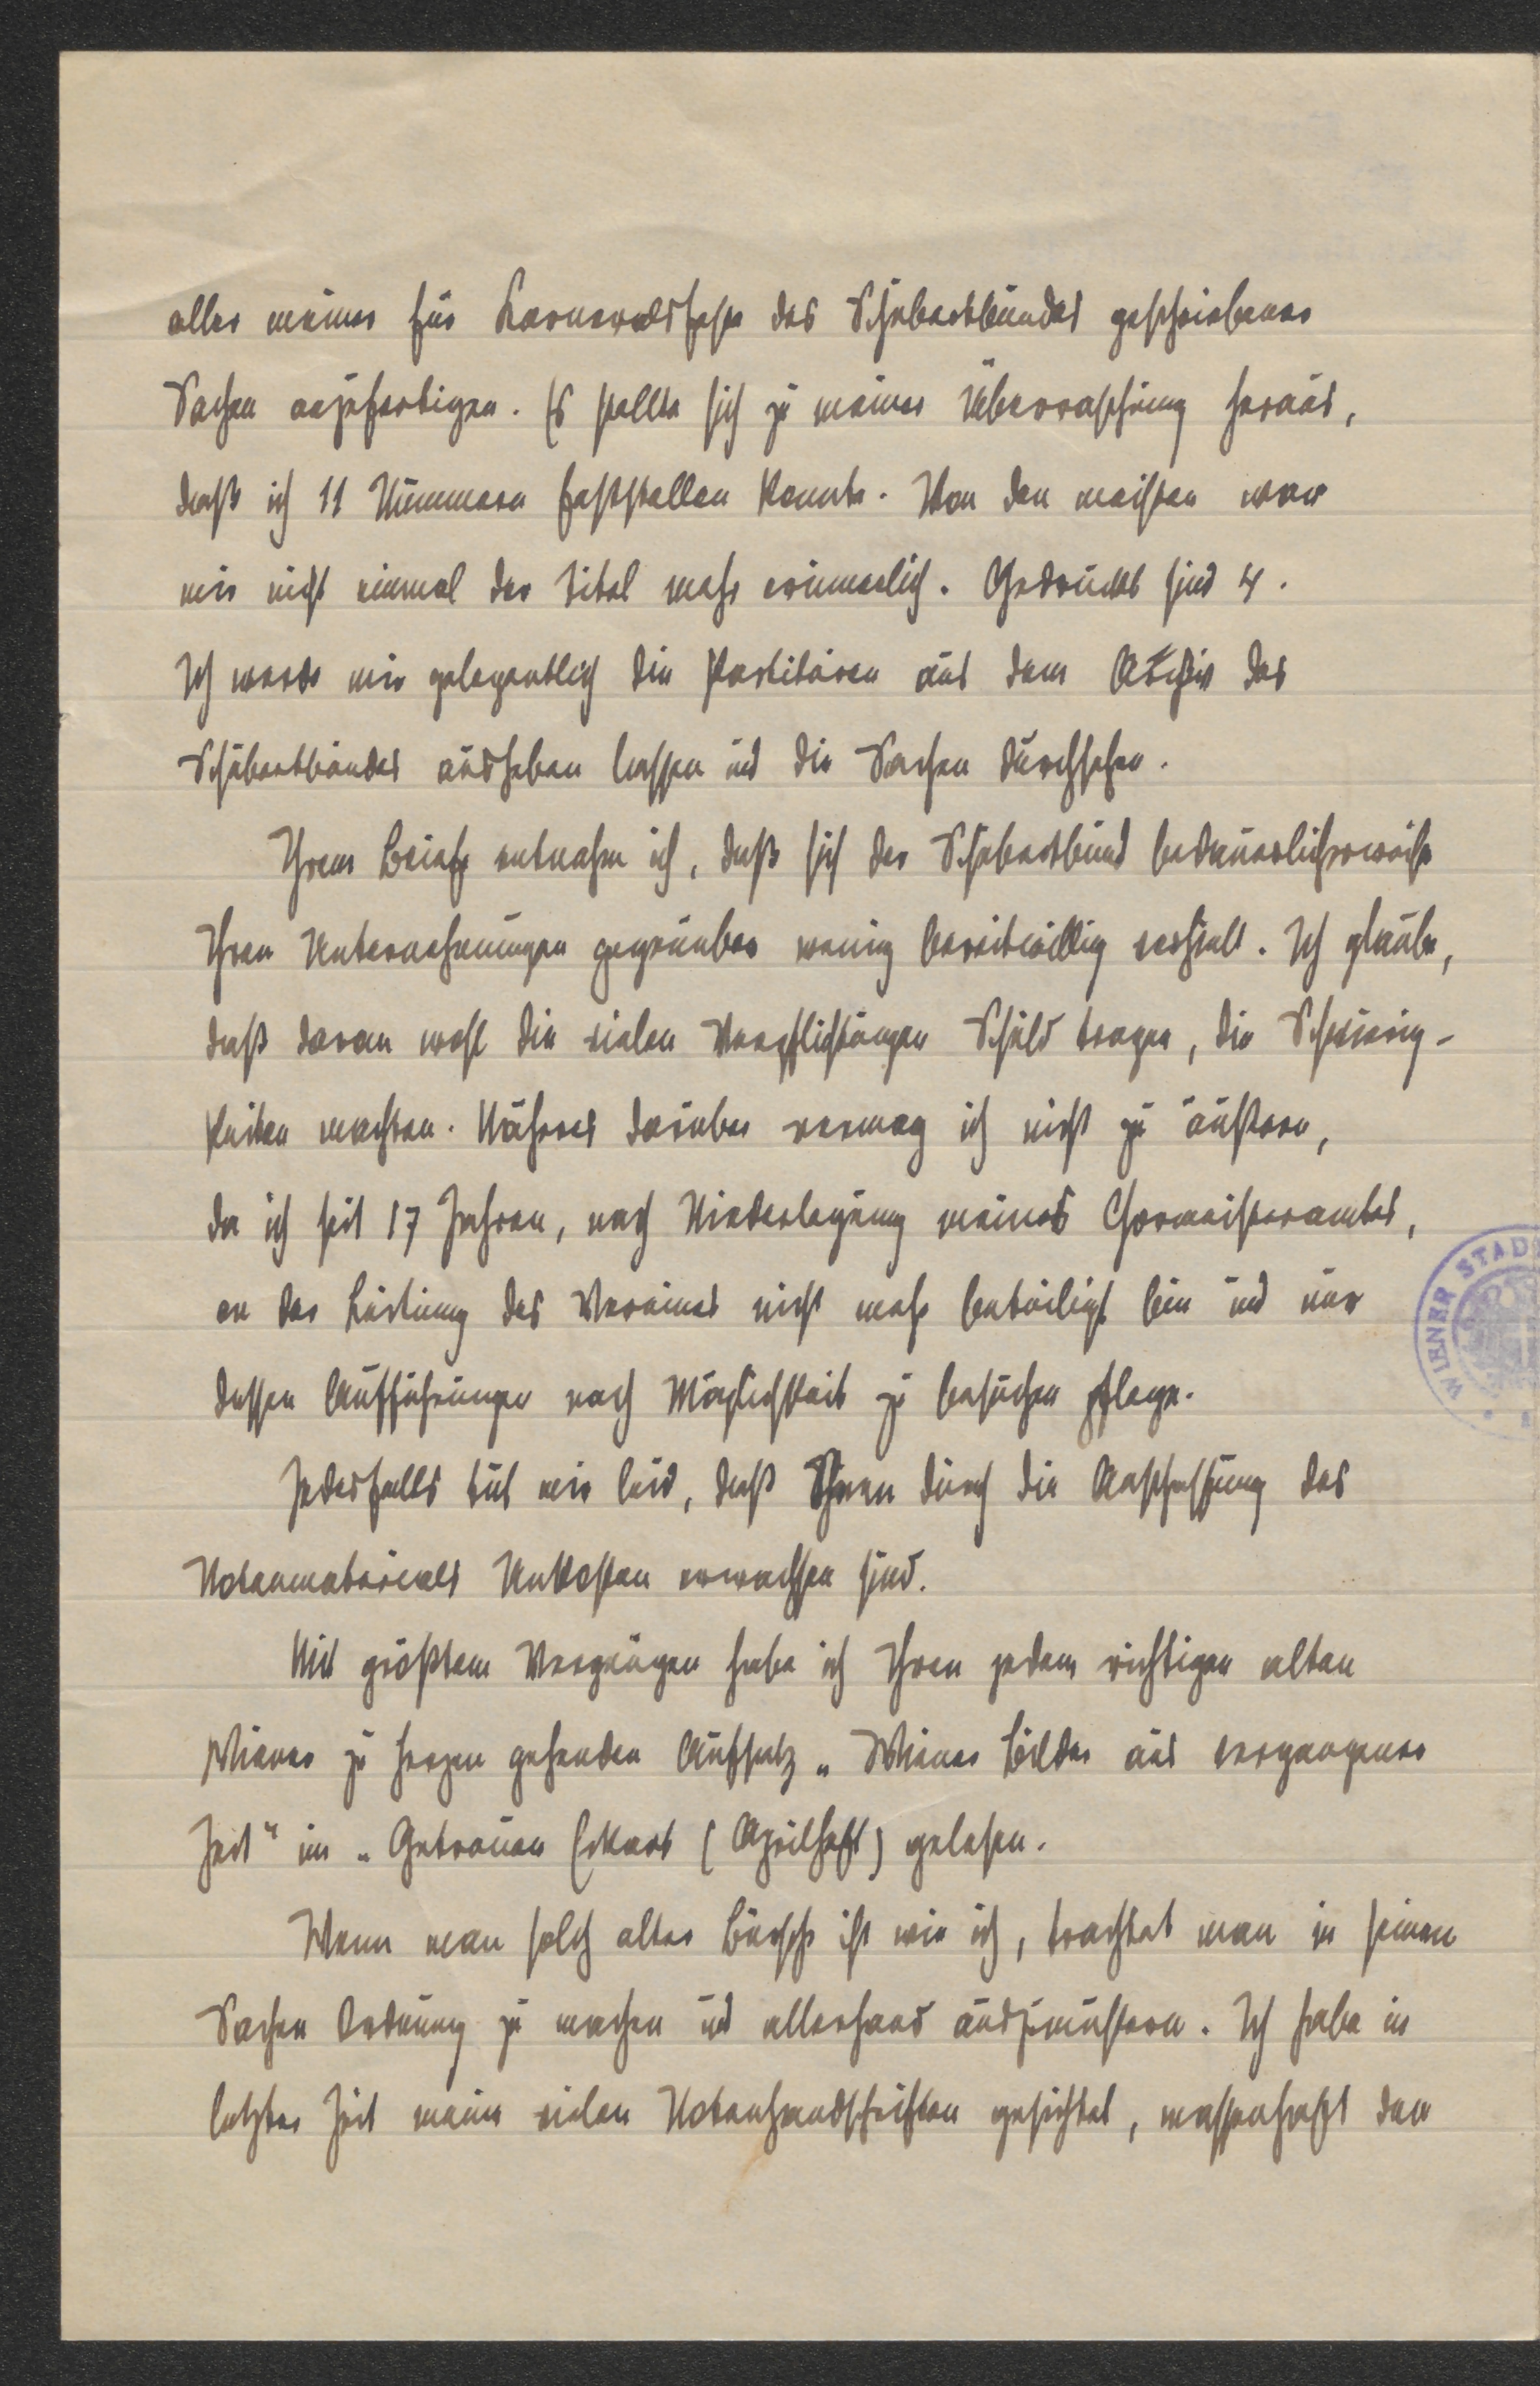 aller meiner für Karnevalsfeste des Schubertbundes geschriebener
Sachen anzufertigen. Es stellte sich zu meiner Überraschung heraus,
daß ich 11 Nummern feststellen konnte. Von den meisten war
mir nicht einmal der Titel mehr erinnerlich. Gedruckt sind 4.
Ich werde mir gelegentlich die Partituren aus dem Archiv des
Schubertbundes ausheben lassen und die Sachen durchsehen.
Ihrem Briefe entnahm ich, daß sich der Schubertbund bedauerlicherweise
Ihren Unternehmungen gegenüber wenig bereitwillig verhielt. Ich glaube,
daß daran wohl die vielen Verpflichtungen Schuld tragen, die Schwierig-
keiten machten. Näheres darüber vermag ich nicht zu äußern,
da ich seit 17 Jahren, nach Niederlegung meines Chormeisteramtes,
an der Leitung des Vereines nicht mehr beteiligt bin und nur
dessen Aufführungen nach Möglichkeit zu besuchen pflege.
Jedesfalls tut mir leid, daß Ihnen durch die Anschaffung des
Notenmateriales Unkosten erwachsen sind.
Mit größtem Vergnügen habe ich Ihren jedem richtigen alten
Wiener zu Herzen gehenden Aufsatz „Wiener Bilder aus vergangener
Zeit" im „Getreuen Eckart (Aprilheft) gelesen.
Wenn man solch alter Bursche ist wie ich, trachtet man in seinen
Sachen Ordnung zu machen und allerhand auszumustern. Ich habe in
letzter Zeit meine vielen Notenhandschriften gesichtet, massenhaft den
WIENER STAD